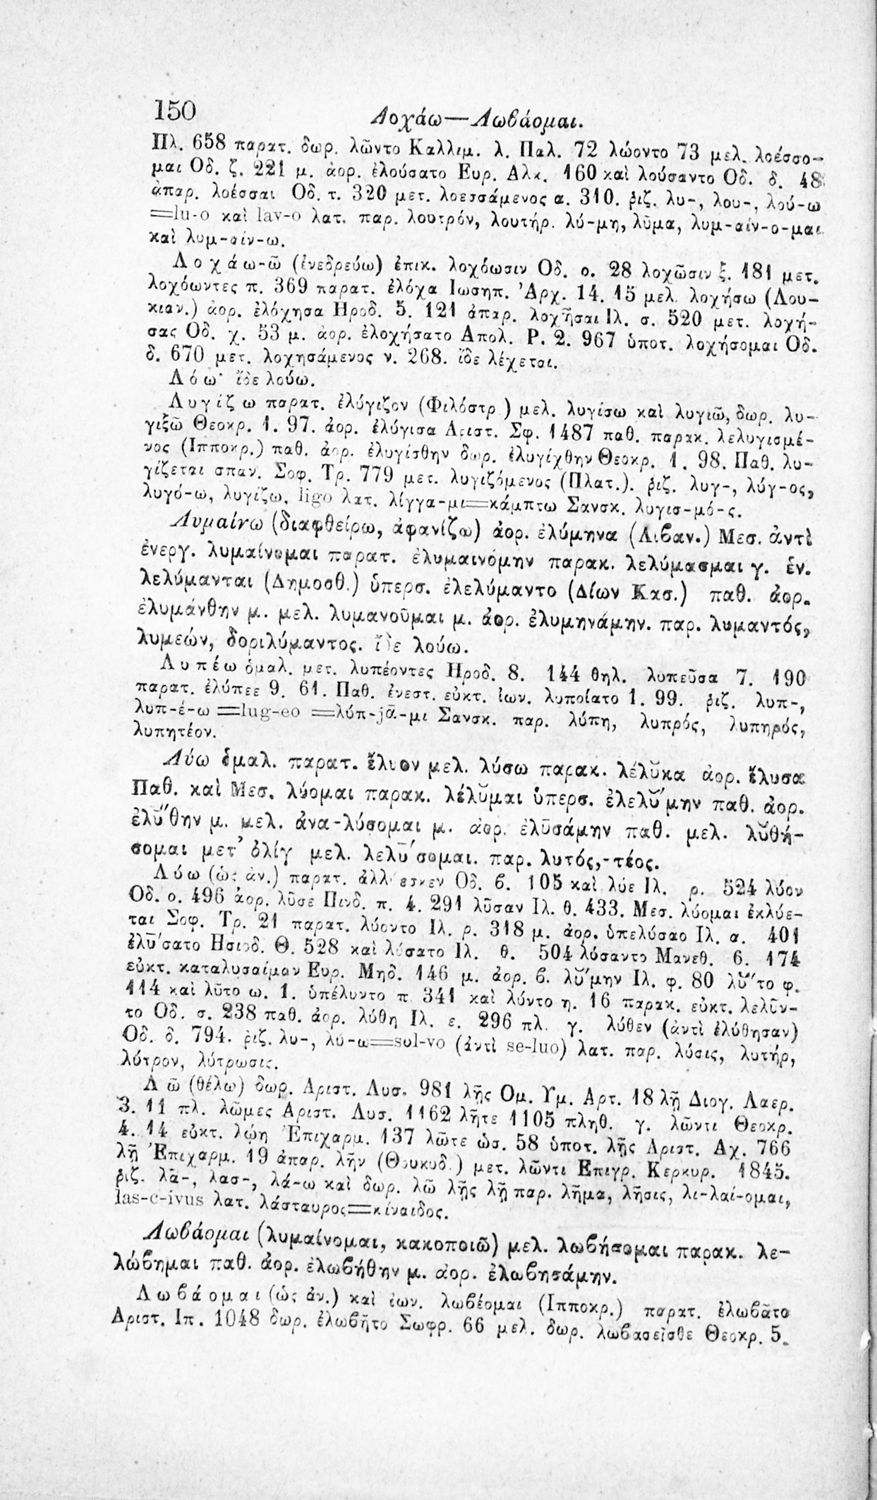 150 Λοχάω—Λωβάομαι.
Πλ. 658 παρατ. δωρ. λῶντο Καλλιμ. λ. Παλ. 72 λώοντο 73 μελ. λοέσσο-
μαι Οδ. ζ. 221 μ. ἀορ. ἐλούσατο Ευρ. Αλκ. 160 καὶ λούσαντο Οδ. δ. 48
ἀπαρ. λοέσσαι Οδ. τ. 320 μετ. λοεσσάμενος α. 310. ῥιζ. λυ-, λου-, λού-ω
=lu-o καὶ lav-o λατ. παρ. λουτρόν, λουτήρ. λύ-μη, λῦμα, λυμ-αίν-ο-μαι
καὶ λυμ-αίν-ω.
Λοχάω-ῶ (ἐνεδρεύω) ἐπικ. λοχόωσιν Οδ. ο. 28 λοχῶσιν ξ. 181 μετ.
λοχόωντες π. 369 παρατ. ἐλόχα Ιωσηπ. Ἀρχ. 14. 15 μελ. λοχήσω (Λου-
κιαν.) ἀορ. ἐλόχησα Ηροδ. 5. 121 ἀπαρ. λοχῆσαι Ιλ. σ. 520 μετ. λοχή-
σας Οδ. χ. 53 μ. ἀορ. ἐλοχήσατο Απολ. Ρ. 2. 967 ὑποτ. λοχήσομαι Οδ.
δ. 670 μετ. λοχησάμενος ν. 268. ἴδε λέχεται.
Λόω· ἴδε λούω.
Λυγίζω παρατ. ἐλύγιζον (Φιλόστρ.) μελ. λυγίσω καὶ λυγιῶ, δωρ. λυ-
γιξῶ Θεοκρ. 1. 97. ἀορ. ἐλύγισα Αριστ. Σφ. 1487 παθ. παρακ. λελυγισμέ-
νος (Ιπποκρ.) παθ. ἀορ. ἐλυγίσθην δωρ. ἐλυγίχθην Θεοκρ. 1. 98. Παθ. λυ-
γίζεται σπαν. Σοφ. Τρ. 779 μετ. λυγιζόμενος (Πλατ.). ῥιζ. λυγ-, λύγ-ος,
λυγό-ω, λυγίζω, ligo λατ. λίγγα-μι=κάμπτω Σανσκ. λυγισ-μό-ς.
Λυμαίνω (διαφθείρω, ἀφανίζω) ἀορ. ἐλύμηνα (Λιβαν.) Μεσ. ἀντὶ
ἐνεργ. λυμαίνομαι παρατ. ἐλυμαινόμην παρακ. λελύμασμαι γ. ἑν.
λελύμανται (Δημοσθ.) ὑπερσ. ἐλελύμαντο (Δίων Κασ.) παθ. ἀορ.
ἐλυμάνθην μ. μελ. λυμανοῦμαι μ. ἀορ. ἐλυμηνάμην. παρ. λυμαντός,
λυμεών, δοριλύμαντος. ἴδε λούω.
Λυπέω ὁμαλ. μετ. λυπέοντες Ηροδ. 8. 144 θηλ. λυπεῦσα 7. 190
παρατ. ἐλύπεε 9. 61. Παθ. ἐνεστ. εὐκτ. ἰων. λυποίατο 1. 99. ῥιζ. λυπ-,
λυπ-έ-ω=lug-eo=λύπ-jᾱ-μι Σανσκ. παρ. λύπη, λυπρός, λυπηρός,
λυπητέον.
Λύω ὁμαλ. παρατ. ἔλυον μελ. λύσω παρακ. λέλῠκα ἀορ. ἔλυσα
Παθ. καὶ Μεσ. λύομαι παρακ. λέλῠμαι ὑπερσ. ἐλελῠ́μην παθ. ἀορ.
ἐλῠ́θην μ. μελ. ἀνα-λύσομαι μ. ἀορ. ἐλῡσάμην παθ. μελ. λῠθή-
σομαι μετ’ ὀλίγ μελ. λελῡ́σομαι. παρ. λυτός,-τέος.
Λύω (ὡς ἀν.) παρατ. ἀλλύεσκεν Οδ. β. 105 καὶ λύε Ιλ. ρ. 524 λύον
Οδ. ο. 496 ἀορ. λῦσε Πινδ. π. 4. 291 λῦσαν Ιλ. θ. 433. Μεσ. λύομαι ἐκλύε-
ται Σοφ. Τρ. 21 παρατ. λύοντο Ιλ. ρ. 318 μ. ἀορ. ὑπελύσαο Ιλ. α. 401
ἐλῡ́σατο Ησιοδ. Θ. 528 καὶ λύσατο Ιλ. θ. 504 λύσαντο Μανεθ. 6. 174
εὐκτ. καταλυσαίμαν Ευρ. Μηδ. 146 μ. ἀορ. β. λῠ́μην Ιλ. φ. 80 λῠ́το φ.
114 καὶ λῦτο ω. 1. ὑπέλυντο π. 341 καὶ λύντο η. 16 παρακ. εὐκτ. λελῦν-
το Οδ. σ. 238 παθ. ἀορ. λύθη Ιλ. ε. 296 πλ. γ. λύθεν (ἀντὶ ἐλύθησαν)
Οδ. δ. 794. ῥιζ. λυ-, λύ-ω=sol-vo (ἀντὶ se-luo) λατ. παρ. λύσις, λυτήρ,
λύτρον, λύτρωσις.
Λῶ (θέλω) δωρ. Αριστ. Λυσ. 981 λῇς Ομ. Υμ. Αρτ. 18 λῇ Διογ. Λαερ.
3. 11 πλ. λῶμες Αριστ. Λυσ. 1162 λῆτε 1105 πληθ. γ. λῶντι Θεοκρ.
4. 14 εὐκτ. λῴη Ἐπιχαρμ. 137 λῶτε ὡσ. 58 ὑποτ. λῇς Αριστ. Αχ. 766
λῇ Ἐπιχαρμ. 19 ἀπαρ. λῆν (Θουκυδ.) μετ. λῶντι Επιγρ. Κερκυρ. 1845.
ῥιζ. λα-, λασ-, λά-ω καὶ δωρ. λῶ λῇς λῇ παρ. λῆμα, λῆσις, λι-λαί-ομαι,
las-c-ivus λατ. λάσταυρος=κίναιδος.
Λωβάομαι (λυμαίνομαι, κακοποιῶ) μελ. λωβήσομαι παρακ. λε-
λώβημαι παθ. ἀορ. ἐλωβήθην μ. ἀορ. ἐλωβησάμην.
Λωβάομαι (ὡς ἀν.) καὶ ἰων. λωβέομαι (Ιπποκρ.) παρατ. ἐλωβᾶτο
Αριστ. Ιπ. 1048 δωρ. ἐλωβῆτο Σωφρ. 66 μελ. δωρ. λωβασεῖσθε Θεοκρ. 5.